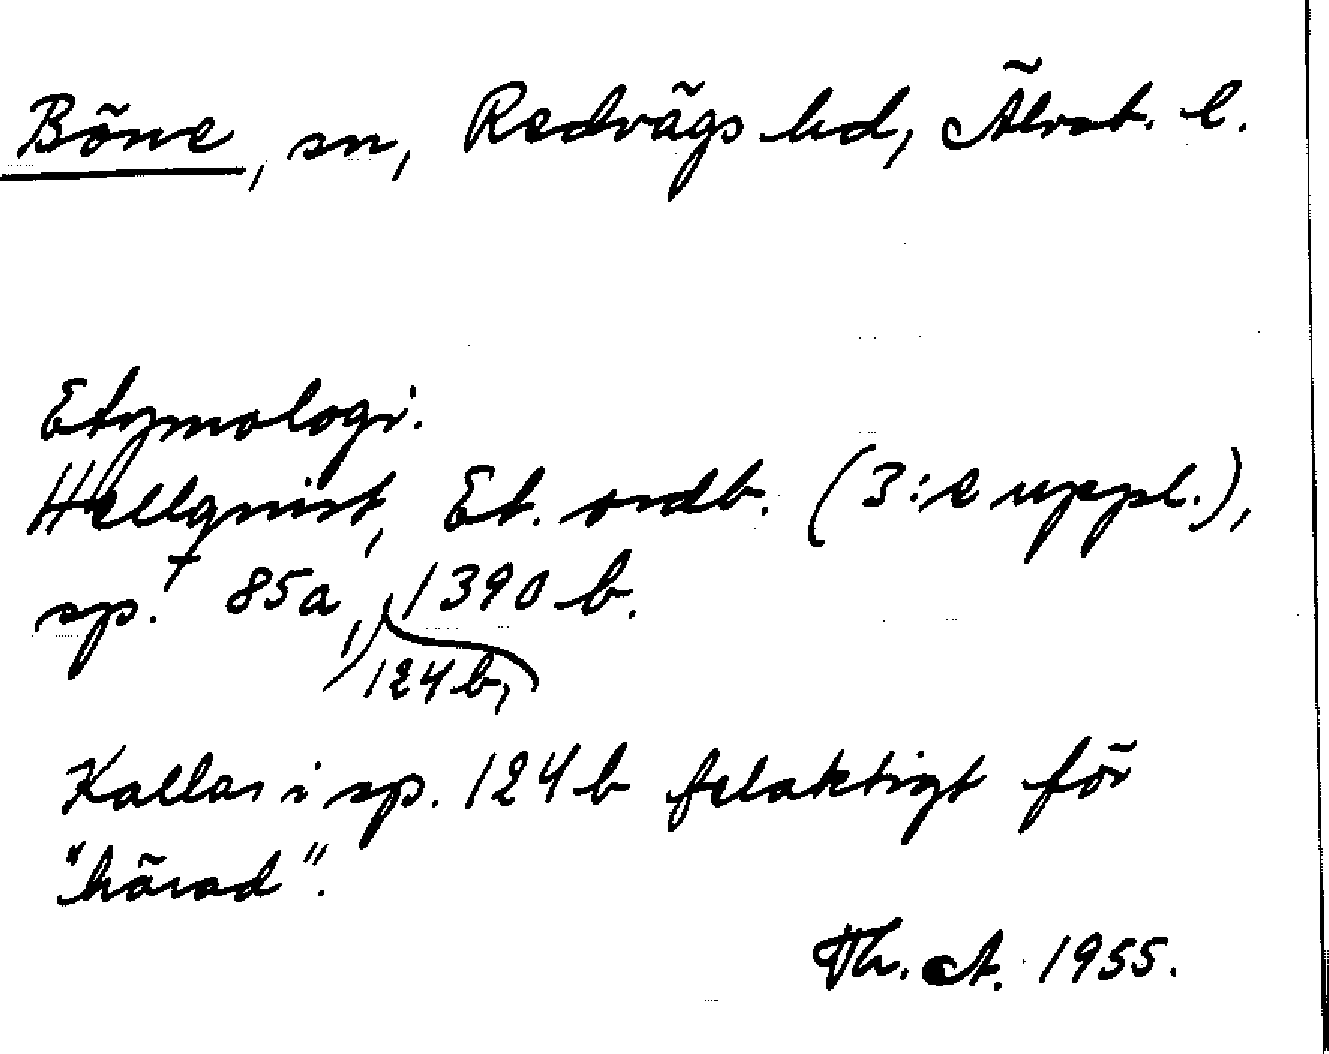 Böne, sn, Redvägs hd, Älvsb. l.
Etymologi.
Hellquist, Et. ordb. (3:e uppl.),
sp. 85a, 124b, 1390 b.
Kallas i sp. 124 b felaktigt för
"härad".
Th. A. 1955.